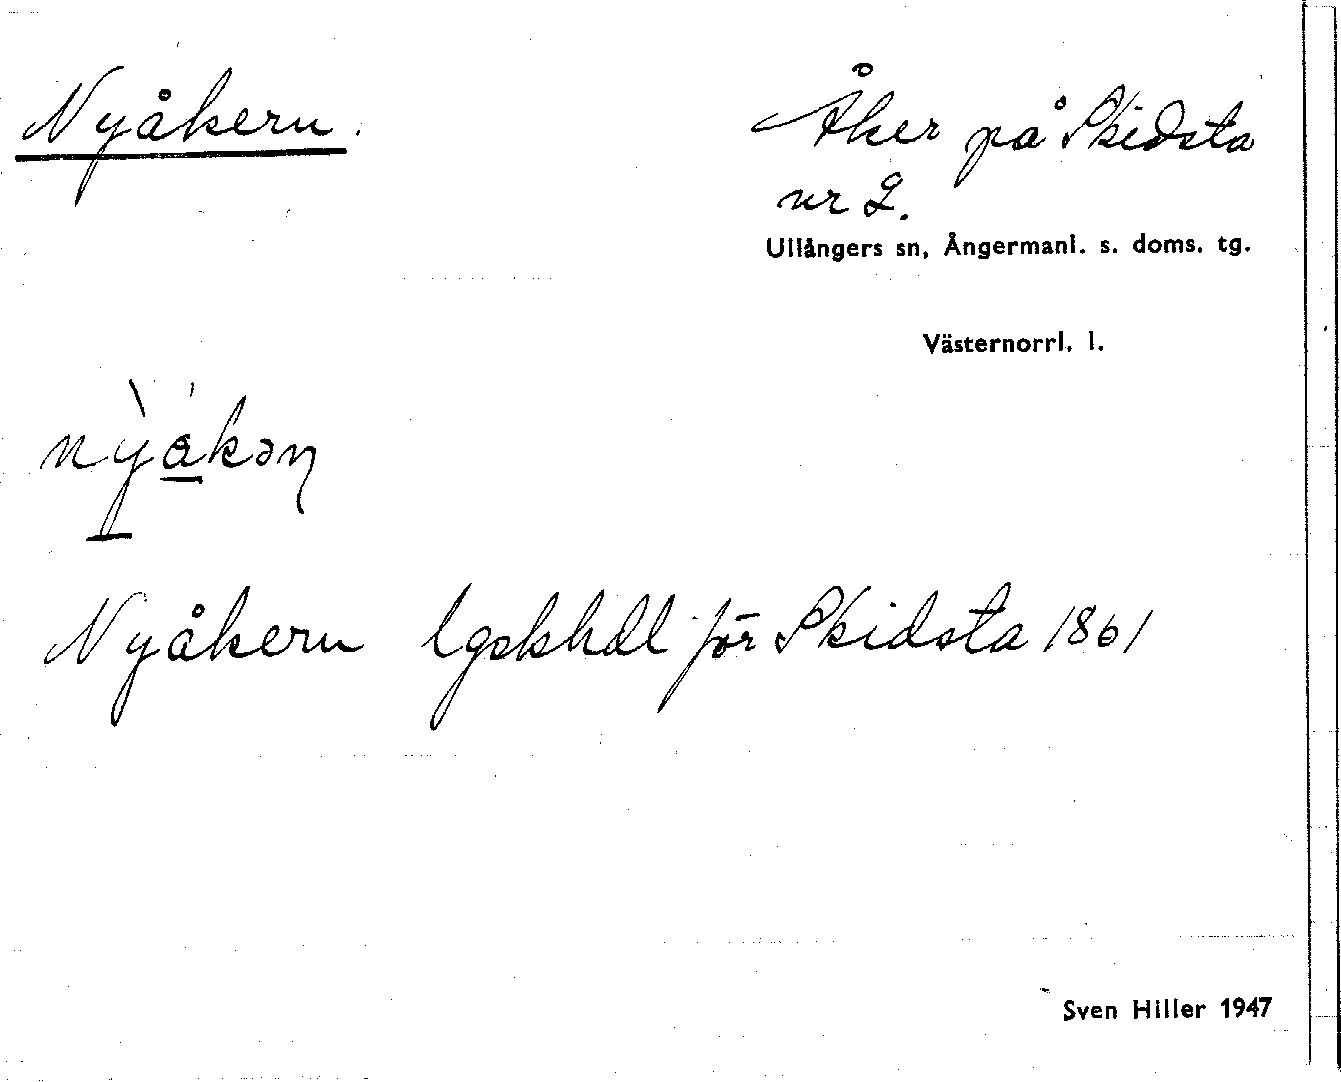 Nyåkern.
Åker på Skidsta
nr 2.
Ullångers sn, Ångermanl. s. doms. tg.
Västernorrl. l.
nỳákən
Nyåkern lgskhdl för Skidsta 1861
Sven Hiller 1947